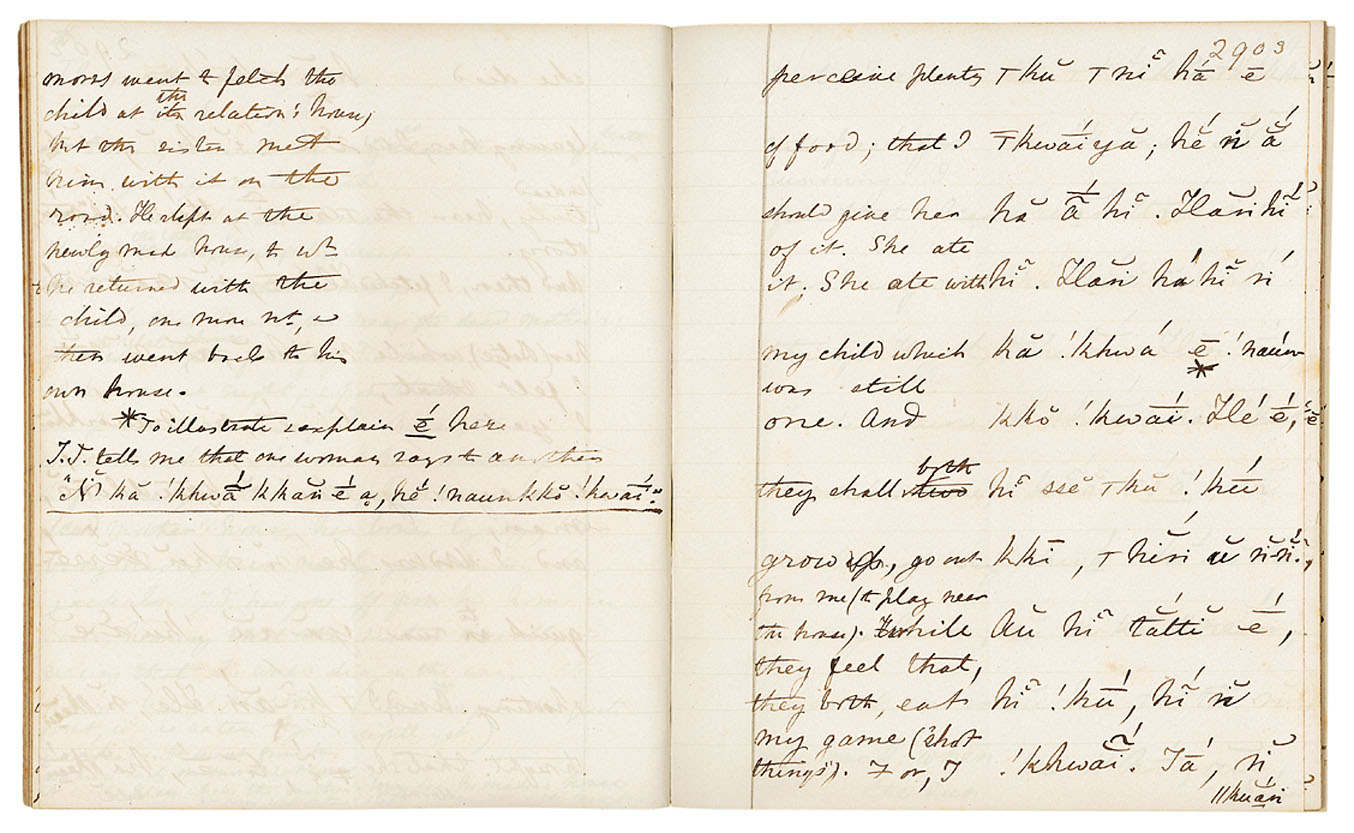 morrs went to fetch the
child at its the relation's house,
but the sister met
him with it on the
road. He slept at the
newly made house, to wh
he returned with the
child, one more nt, &
then went back to his
own house.
* To illustrate & explain é̱ here
J.T. tells me that one woman says to another
"Ṅ kă !khwā́ kkăṅ é a̱, hĕ́ !naunkkŏ !kwāĭ́."
2903
perceive plenty ꞱkŭꞱniñ hā́ ē
of food; that I Ʇkwaíyă; hĕ́ ṅ ắ
should give her hă ā̃́ hĭñ. Hăṅ hĭ́
of it. She ate
it. She ate with hĭñ. Hăṅ há hĭñ ṅ́
my child which kă !khwá ē !naun-
was still *
one. And kkŏ !kwāĭ́. Hé é,
they shall two both hĭñ ssĕ Ʇkŭ !kŭ́
grow up, go out kkī, Ʇhĭ́ṅ ŭ ṅ ṅ́.
from me (to play near
the house). While Aŭ hĭñ tắtti é,
they feel that,
they both, eat hĭñ !kū́, hĭ́ ṅ
my game ("shot
things"). For, I !khwāĭ̃́. Tá, ṅ
||kuăṅ